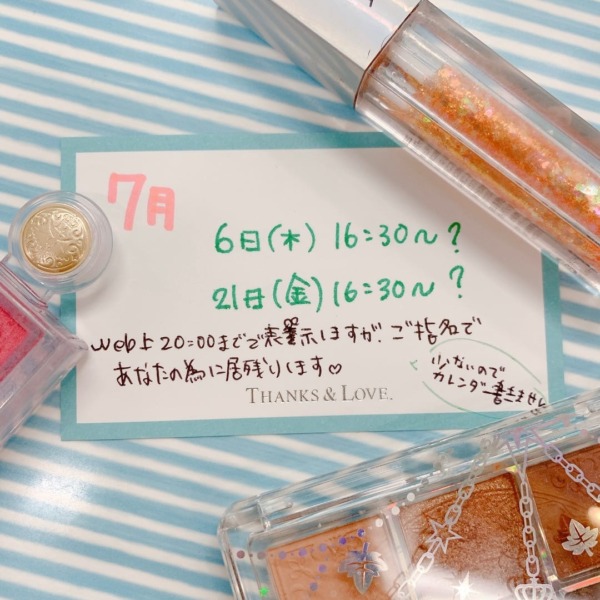 7月
6日(木) 16:30〜?
21日(金) 16:30〜?
web上20:00までで表示しますが、ご指名で
あなたの為に居残りします♡
少ないので
カレンダー書きません
THANKS & LOVE.